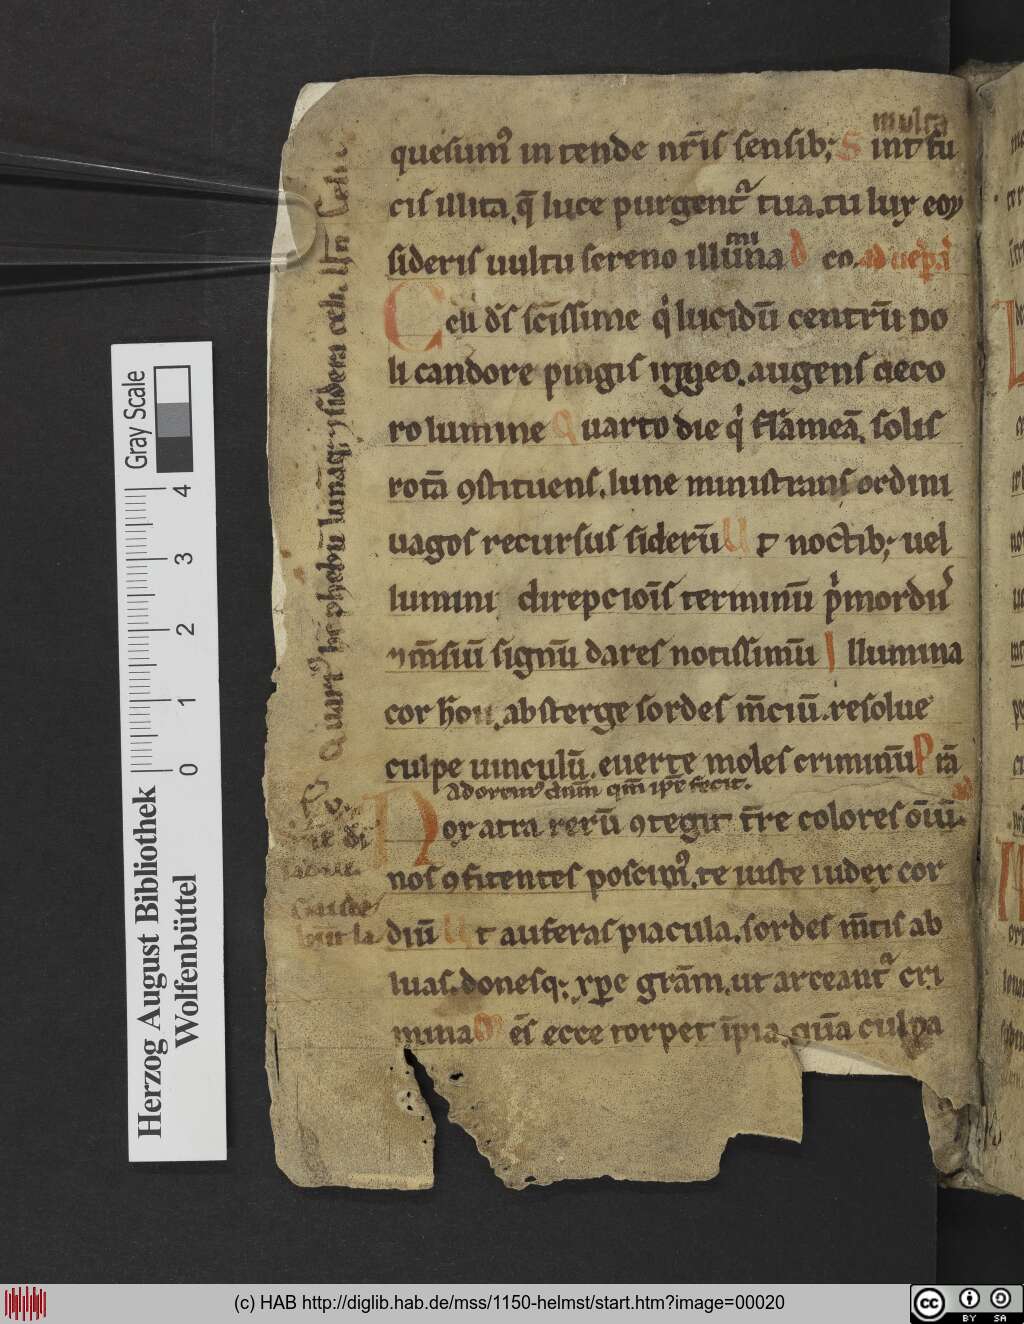 multa
quesumꝰ in tende nr̄is sensib; Sint fu
cis illita, q̄ luce purgentᷣ tua. tu lux eoꝝ
mi
sideris uultu sereno illūina d eo. ad uesp̄ai
Celi ds̄ sc̄issime qͥ lucidū centrū po
li candore pingis igneo. augens deco
ro lumine Quarto die qͥ flāmeā. solis
rotā ꝯstituens. lune ministrans ordini
uagos recursus siderū Ut noctib; uel
lumini direpcioīs terminū pͥmordii
m̄siū signū dares notissimū Illumina
cor hoīū. absterge sordes m̄ciū. resolue
culpe uinculū. euerte moles criminū P̄rā
Adoremꝰ dnm̄ qm̄ ip̄e fecit.
Nox atra rerū ꝯtegit t̄re colores oīū.
nos ꝯfitentes poscimꝰ. te iuste iudex cor
diū Ut auferas piacula. sordes m̄tis ab
luas. donesq; xp̄e grām. ut arceantᷣ cri
mina Mēs ecce torpet īpia. quā culpa
Quartꝰ phebū lunāq; ⁊ sidera celi.
Gray Scale
4
3
2
1
0
Herzog August Bibliothek
Wolfenbüttel
(c) HAB http://diglib.hab.de/mss/1150-helmst/start.htm?image=00020
cc BY SA